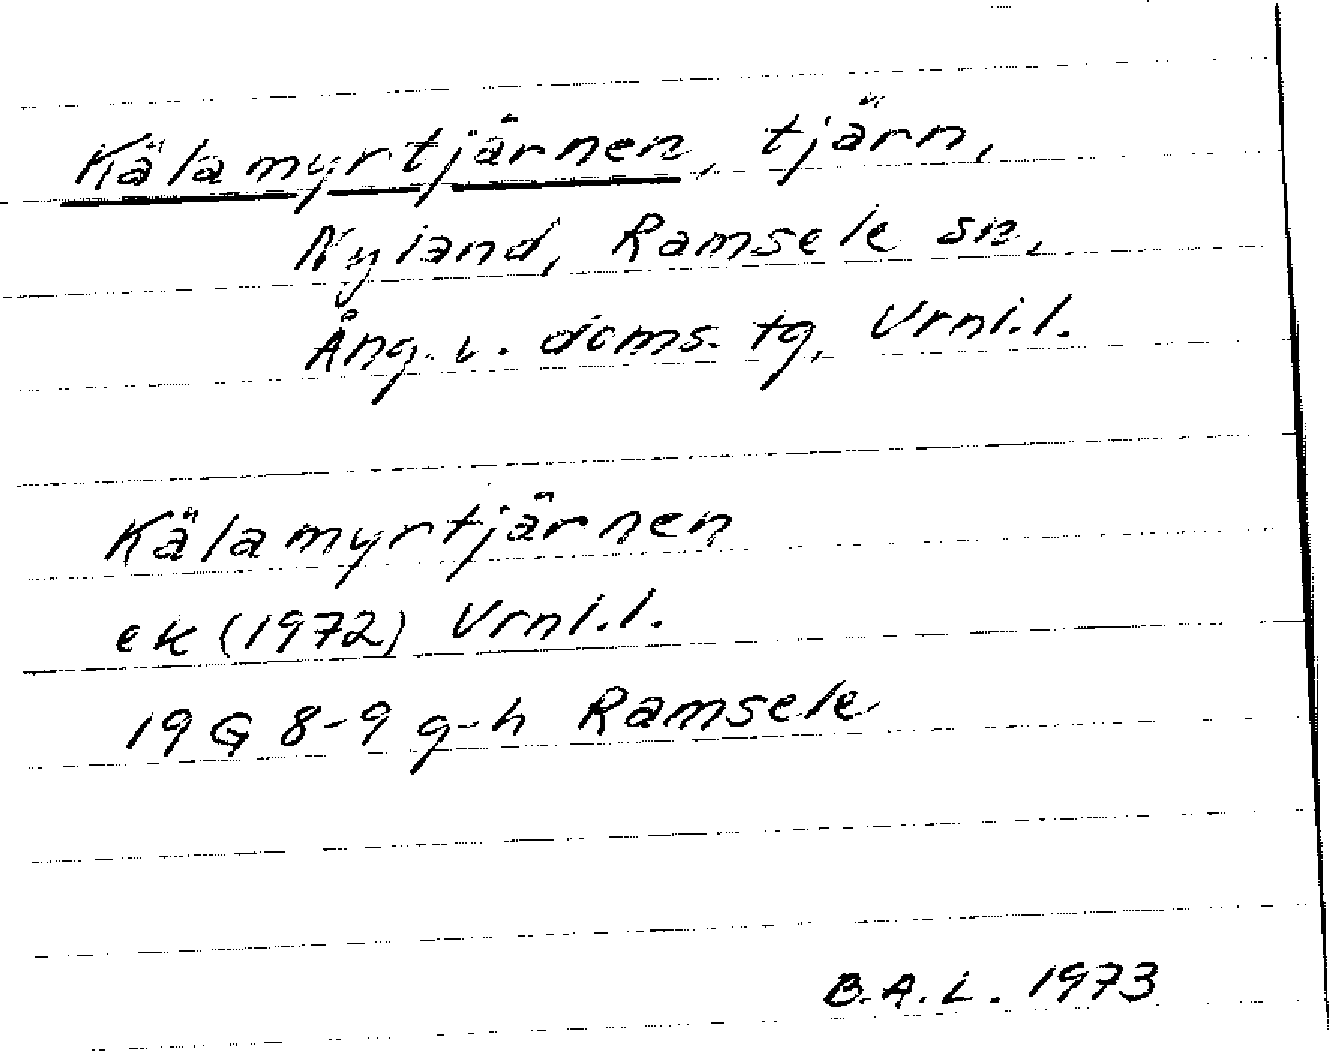 Kälamyrtjärnen, tjärn,
Nyland, Ramsele sn,
Ång. v. doms. tg, Vrnl.l.
Kälamyrtjärnen
ek (1972) Vrnl.l.
19 G 8-9 g-h Ramsele
B.A.L. 1973